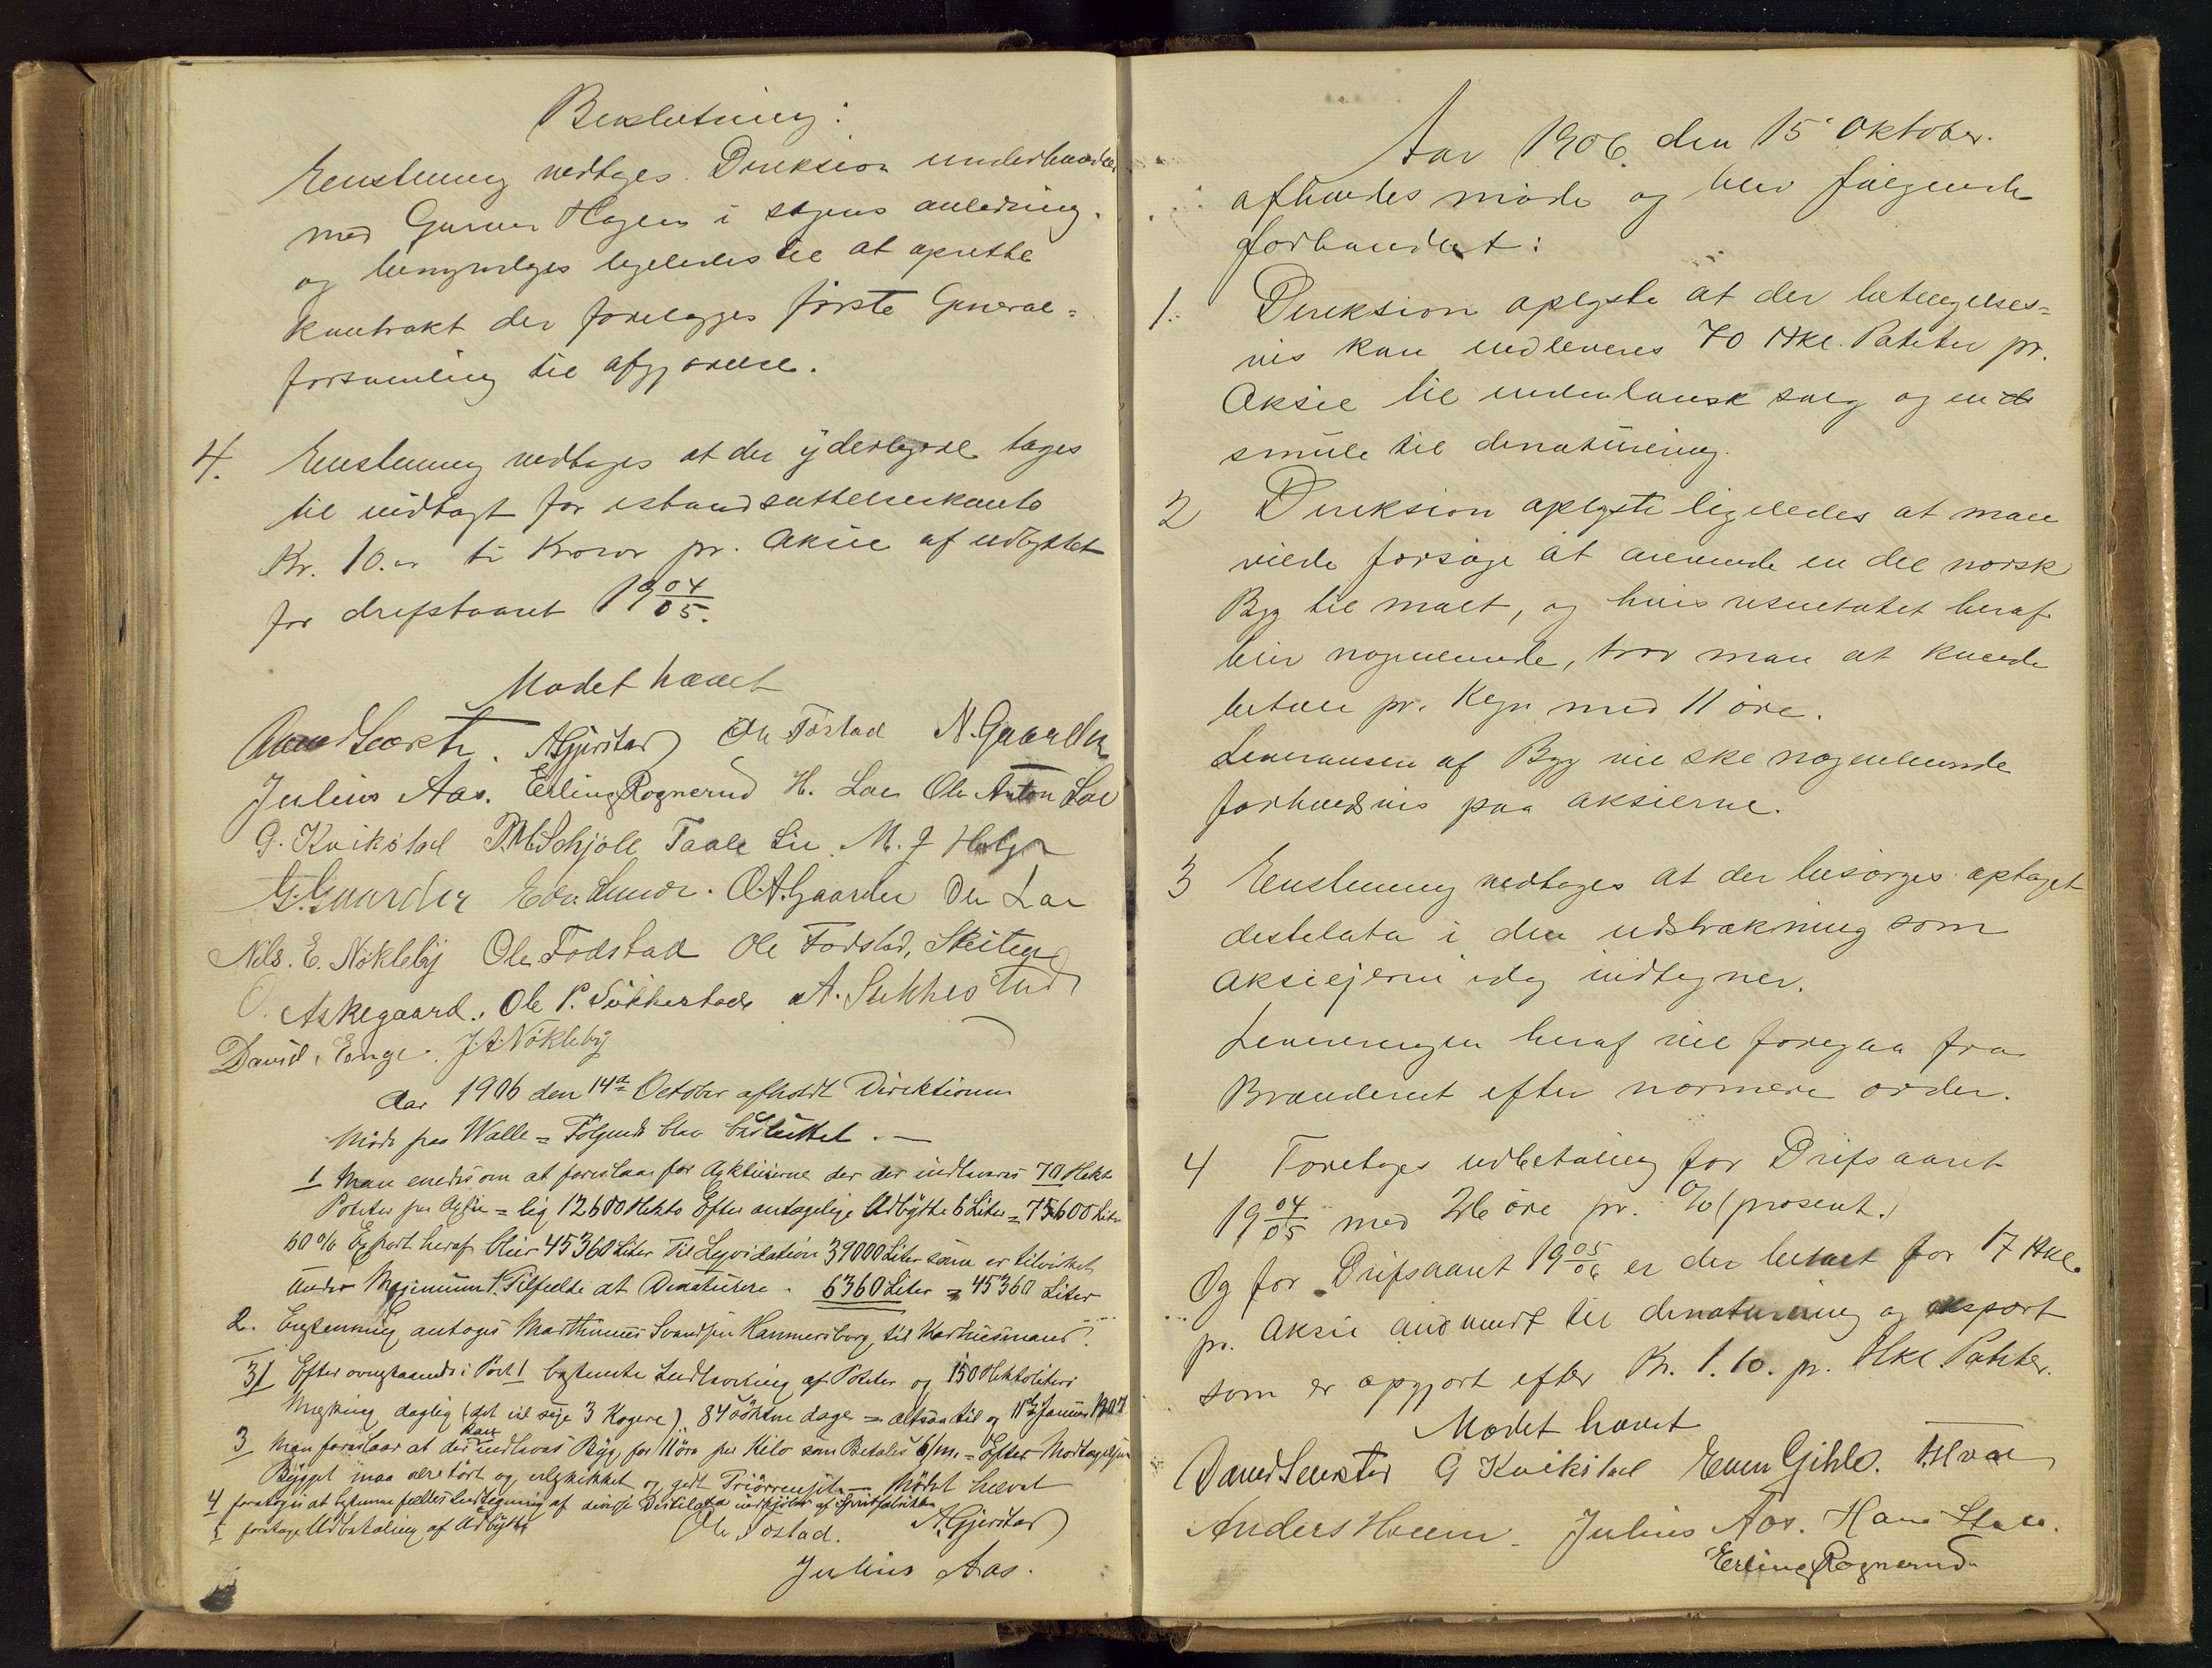 Beslutning:
Enstemmig vedtages. Direksion underhandler
med Gunner Hagen i sagens anledning.
og bemyndiges ligeledes til at oprette
kontrakt der forelægges første General=
forsamling til afgjørelse.
4. Enstemmig vedtages at der yderligere tages
til indtægt for istandsættelseskonto
Kr. 10.- ti Kroner pr. Aksie af udbyttet
for driftsaaret 19 04/05.
Mødet hævet
A Gjerstad Ole Fostad N. Gaarder
Julius Aas. Erling Rognerud H. Loe Ole Anton Loe
G. Kvikstad P.M. Schjöll Taale Lie. M. J
G. Gaarder O.A. Gaarder Ole Loe
Nils. E. Nökleby Ole Fodstad Ole Fodstad,
O. Askegaard. Ole P. Sukkestad A. Sukkestad
David Enge. J.A. Nökleby
Aar 1906 den 14de October afholdt Direktionen
Möde paa Walle = Følgende blev besluttet. —
1 Man enedes om at foreslaa for Agktieierne der der indleveres 70 Hekt
Poteter per Agtie = lig 12600 Hekto Efter antagelige Udbytte 6 Liter = 75600 Liter
60% Export heraf blir 45360 Liter Til Leqvidation 39000 Liter som er tilvirket
under Maximum. Tilfelde at Denaturere. 6360 Liter = 45360 Liter
2. Enstemmig antoges Marthinus Svendsen Hammersborg, til
3/ Efter ovenstaaende i Post 1 bestemte Indlevering af Poteter og 150 Hektoliters
Meskning daglig (det vil sige 3 Kogere). 84 söktne dage = altsaa til og 11te Januar 1907
3 Man foreslaar at der kan indleveres Byg, for 11 öre per Kilo som Betales 6/m. = Efter Modtagelsen
Bygget maa være tört og velskikket og godt Mödet hævet
4 foretoges at bestemme fælles Indtegning af diverse Destilata af Spritfabriken
5 foretage Udbetaling af Udbytte
Ole Fostad. A. Gjerstad
Julius Aas.
Aar 1906. den 15 Oktober.
afholdes møde og blev følgende
forhandlet:
1. Direksion oplyste at der betingelses=
vis kan indleveres 70 Hkl. Poteter pr.
Aksie til indenlansk salg og en
smule til denaturering.
2 Direksion oplyste ligeledes at man
vilde forsøge at anvende en del norsk
Byg til malt, og hvis resultatet heraf
blir nogenlunde, tror man at kunde
betale pr. Kgr med 11 øre.
Leveransen af Byg vil ske nogenlunde
forholdsvis paa aksierne.
3 Enstemmig vedtages at der besørges optaget
destilata i den udstrækning som
aksieierne idag indtegner.
Leveringen heraf vil foregaa fra
Brænderiet efter nærmere order.
4 Foretages udbetaling for Drifsaaret
19 04/05 med 26 øre pr. % (prosent.)
Og for Drifsaaret 19 05/06 er der betalt for 17 Hkl.
pr. Aksie anvendt til denaturering og eksport
som er opgjort efter Kr. 1.10. pr. Hkl. Poteter.
Mødet hævet
G Kvikstad Even Gihle.
Anders Hoem. Julius Aas. Hans
Erling Rognerud